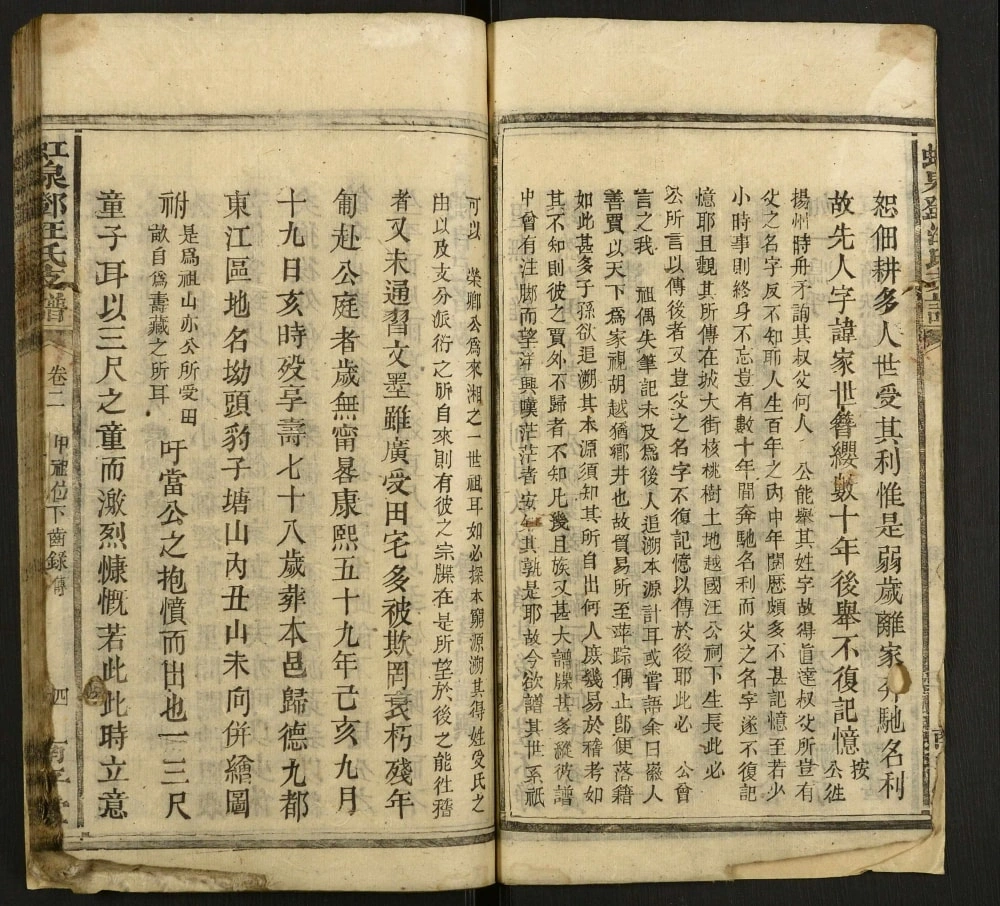 恕佃耕多人世受其利惟是弱歲離家奔馳名利
故先人字諱家世簪纓數十年後舉不復記憶按公徃
揚州時舟矛詢其叔父何人　公能舉其姓字故得直達叔父所豈有
父之名字反不知耶人生百年之內中年閱歷頗多不甚記憶至若少
小時事則終身不忘豈有數十年間奔馳名利而父之名字遂不復記
憶耶且觀其所傳在城大街核桃樹土地越國汪公祠下生長此必
公所言以傳後者又豈父之名字不復記憶以傳於後耶此必　公曾
言之我　祖偶失筆記未及為後人追溯本源計耳或嘗語余曰巖人
善賈以天下為家視胡越猶鄉井也故貿易所至萍踪偶止卽便落籍
如此甚多子孫欲追溯其本源須知其所自出何人庶幾易於稽考如
其不知則彼之賈外不歸者不知凡幾且族又甚大譜牒甚多縱彼譜
中曾有注脚而望洋興嘆茫茫者安知其孰是耶故今欲譜其世系祇
可以　榮卿公為來湘之一世祖耳如必探本窮源溯其得姓受氏之
由以及支分派衍之所自來則有彼之宗牒在是所望於後之能徃稽
者又未通習文墨雖廣受田宅多被欺罔衰朽殘年
匍赴公庭者歲無甯晷康熙五十九年己亥九月
十九日亥時歿享壽七十八歲葬本邑歸德九都
東江區地名坳頭豹子塘山內丑山未向併繪圖
祔是為祖山亦公所受田
畝自為壽藏之所耳吁當公之抱憤而出也一三尺
童子耳以三尺之童而激烈慷慨若此此時立意
虹泉鄧汪氏支譜
卷二
甲祖位下齒錄傳
四